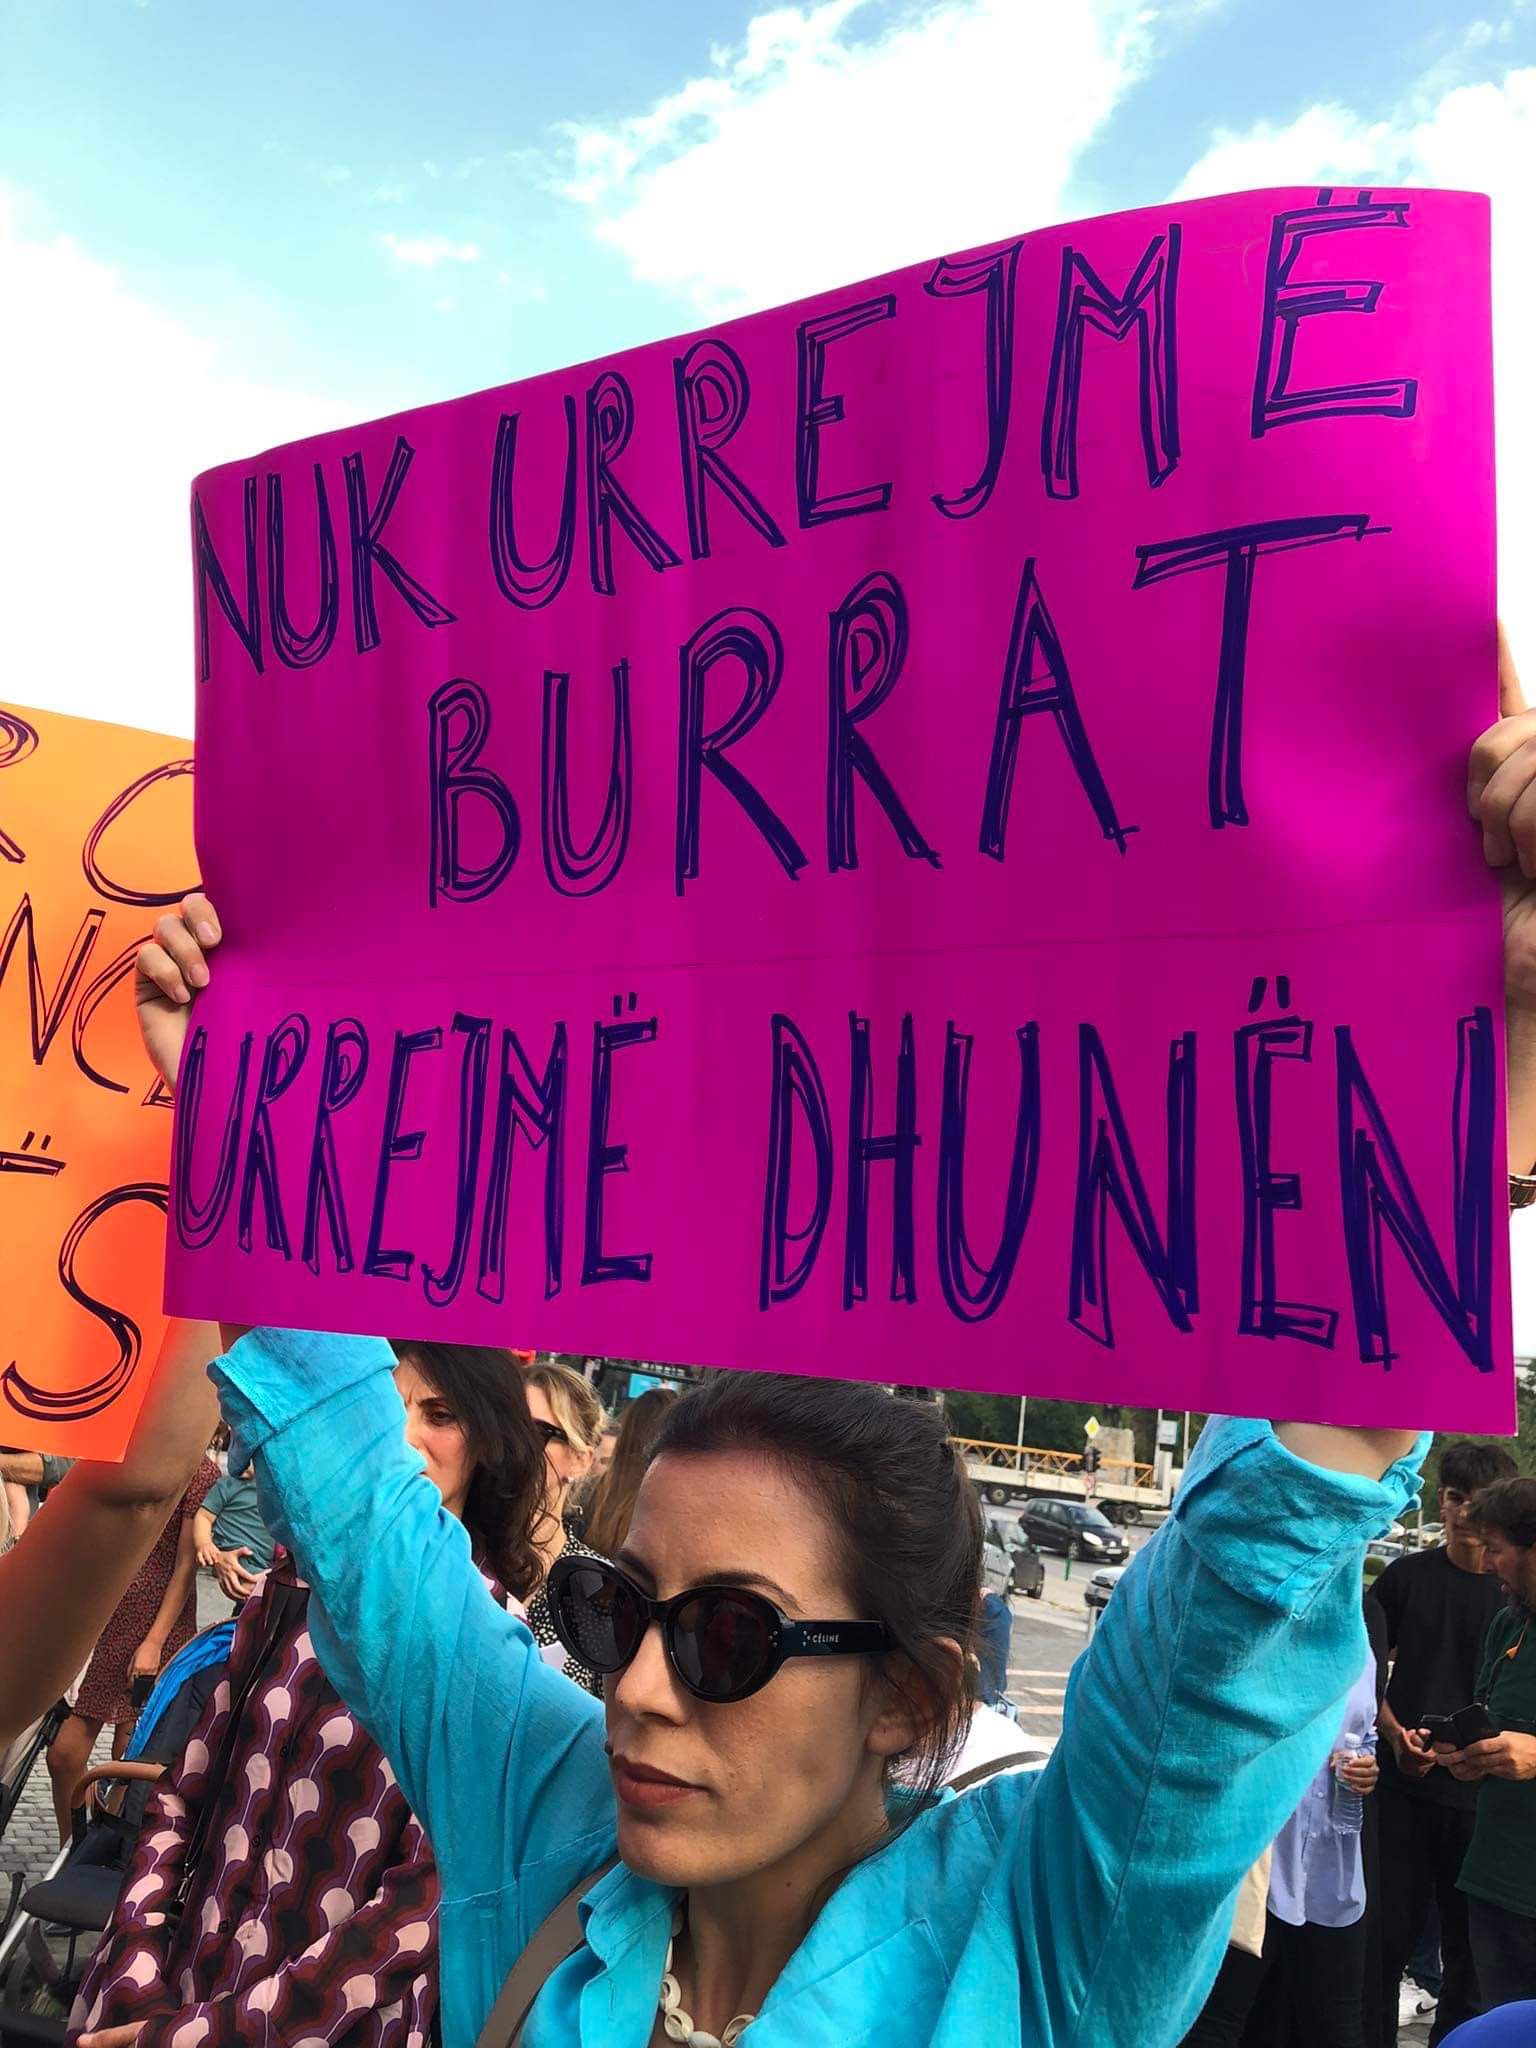 NUK URREJMË
BURRAT
URREJMË DHUNËN
CÉLINE